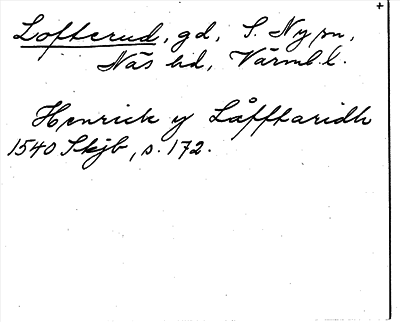 Lofterud, gd, S. Ny sn,
Näs hd, Värml. l.
Henrick y Låfftaridh
1540 Skjb, s. 172.